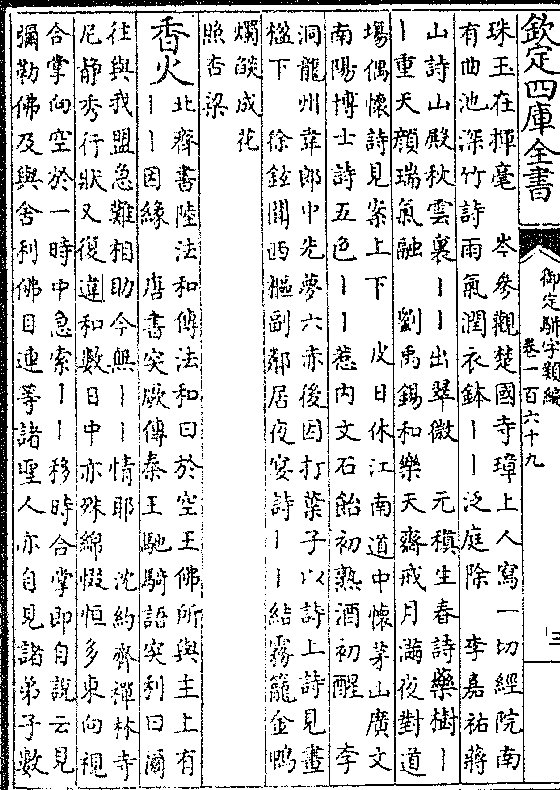 欽定四庫全書
御定駢字類編
卷一百六十九
三
珠玉在揮毫　岑參觀楚國寺璋上人寫一切經院南
有曲池深竹詩雨氣潤衣鉢丨丨泛庭除　李嘉祐蔣
山詩山殿秋雲裏丨丨出翠微　元稹生春詩藥樹丨
丨重天顔瑞氣融　劉禹錫和樂天齋戒月滿夜對道
塲偶懷詩見案上下　皮日休江南道中懷茅山廣文
南陽博士詩五色丨丨惹内文石飴初熟酒初醒　李
洞龍州韋郎中先夢六赤後因打葉子以詩上詩見畫
楹下　徐鉉聞西樞副鄰居夜宴詩丨丨結霧籠金鴨
燭燄成花照杏梁
香火
北齊書陸法和傳法和曰於空王佛所與主上有
丨丨因緣　唐書突厥傳秦王馳騎語突利曰爾
往與我盟急難相助今無丨丨情耶　沈約齊禪林寺
尼静秀行狀又復違和數日中亦殊綿惙恒多東向視
合掌向空於一時中急索丨丨移時合掌即自說云見
彌勒佛及與舍利佛目連等諸聖人亦自見諸弟子數